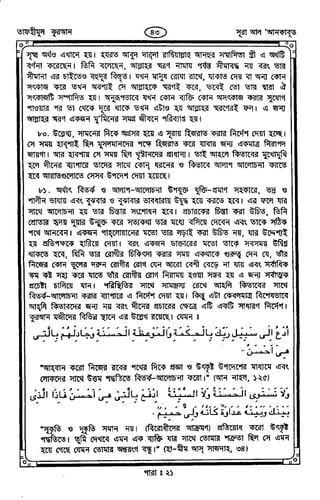 তাফহীমুল কুরআন ৪৩ সূরা আল 'আনকাবূত
সূক্ষ্ম অর্থও এখানে হয়। হযরত আবুদ দারদা রাদিয়াল্লাহু আনহুর
বর্ণনা করেছেন। তিনি বলেছেন, আল্লাহর স্মরণ নামায পর্যন্ত সীমাবদ্ধ নয় বরং তার
সীমানা এর চাইতেও বহুদূর বিস্তৃত। যখন মানুষ রোযা রাখে, যাকাত দেয় বা অন্য কোন
সৎকাজ করে তখন অবশ্যই সে আল্লাহকে স্মরণই করে, তবেই তো তার দ্বারা ঐ
সৎকাজটি সম্পাদিত হয়। অনুরূপভাবে যখন কোন ব্যক্তি কোন অসৎকাজ করার সুযোগ
পাওয়ার পর তা থেকে দূরে থাকে তখন এটাও হয় আল্লাহর স্মরণেরই ফল। এ জন্য
আল্লাহর স্মরণ একজন মু'মিনের সমগ্র জীবনে পরিব্যাপ্ত হয়।
৮০. উল্লেখ্য, সামনের দিকে অগ্রসর হয়ে এ সূরায় হিজরত করার নির্দেশ দেয়া হচ্ছে।
সে সময় হাবশাই ছিল মুসলমানদের পক্ষে হিজরত করে যাবার জন্য একমাত্র নিরাপদ
জায়গা। আর হাবশায় সে সময় ছিল খৃষ্টানদের প্রাধান্য। তাই আহলে কিতাবদের মুখোমুখি
হলে দীনের ব্যাপারে তাদের সাথে কোন্ ধরনের ও কিভাবে আলাপ আলোচনা করতে
হবে আয়াতগুলোতে সেসব উপদেশ দেয়া হয়েছে।
৮১. অর্থাৎ বিতর্ক ও আলাপ-আলোচনা উপযুক্ত যুক্তি-প্রমাণ সহকারে, ভদ্র ও
শালীন ভাষায় এবং বুঝবার ও বুঝাবার ভাবধারায় উদ্বুদ্ধ হয়ে করতে হবে। এর ফলে যার
সাথে আলোচনা হয় তার চিন্তার সংশোধন হবে। প্রচারকের চিন্তা করা উচিত, তিনি
শ্রোতার হৃদয় দুয়ার উন্মুক্ত করে সত্যকথা তার মধ্যে বসিয়ে দেবেন এবং তাকে সঠিক
পথে আনবেন। একজন পাহলোয়ানের মতো তার লড়াই করা উচিত নয়, যার উদ্দেশ্যই
হয় প্রতিপক্ষকে হারিয়ে দেয়া। বরং একজন ডাক্তারের মতো তাকে সবসময় উদ্বিগ্ন
থাকতে হবে, যিনি তার রোগীর চিকিৎসা করার সময় একথাকে গুরুত্ব দেন যে, তাঁর
নিজের কোন ভুলের দরুন রোগীর রোগ যেন আরো বেশী বেড়ে না যায় এবং সর্বাধিক
কম কষ্ট সহ্য করে যাতে তাঁর রোগীর রোগ নিরাময় হওয়া সম্ভব হয় এ জন্য সর্বাত্মক
প্রচেষ্টা চালিয়ে যান। পরিস্থিতির সাথে সামঞ্জস্য রেখে আহলি কিতাবের সাথে
বিতর্ক-আলোচনা করার ব্যাপারে এ নির্দেশ দেয়া হয়। কিন্তু এটা কেবলমাত্র বিশেষভাবে
আহলি কিতাবদের জন্য নয় বরং দীনের প্রচারের ক্ষেত্রে এটি একটি সাধারণ নির্দেশ।
কুরআন মজীদের বিভিন্ন স্থানে এর উল্লেখ রয়েছে। যেমন ঃ
اُدْعُ اِلٰى سَبِيْلِ رَبِّكَ بِالْحِكْمَةِ وَالْمَوْعِظَةِ الْحَسَنَةِ وَجَادِلْهُمْ بِالَّتِىْ
هِىَ اَحْسَنُ -
"আহবান করো নিজের রবের পথের দিকে প্রজ্ঞা ও উৎকৃষ্ট উপদেশের মাধ্যমে এবং
লোকদের সাথে উত্তম পদ্ধতিতে বিতর্ক-আলোচনা করো।" (আন নাহল, ১২৫)
وَلَا تَسْتَوِى الْحَسَنَةُ وَلَا السَّيِّئَةُ اِدْفَعْ بِالَّتِىْ هِىَ اَحْسَنُ فَاِذَا الَّذِىْ
بَيْنَكَ وَبَيْنَهُ عَدَاوَةٌ كَاَنَّهُ وَلِىٌّ حَمِيْمٌ -
"সুকৃতি ও দুষ্কৃতি সমান নয়। (বিরোধীদের আক্রমণ) প্রতিরোধ করো উৎকৃষ্ট
পদ্ধতিতে। তুমি দেখবে এমন এক ব্যক্তি যার সাথে তোমার শত্রুতা ছিল সে এমন
হয়ে গেছে যেমন তোমার অন্তরংগ বন্ধু।" (হা-মীম আস সাজদাহ, ৩৪)
পারা ঃ ২১